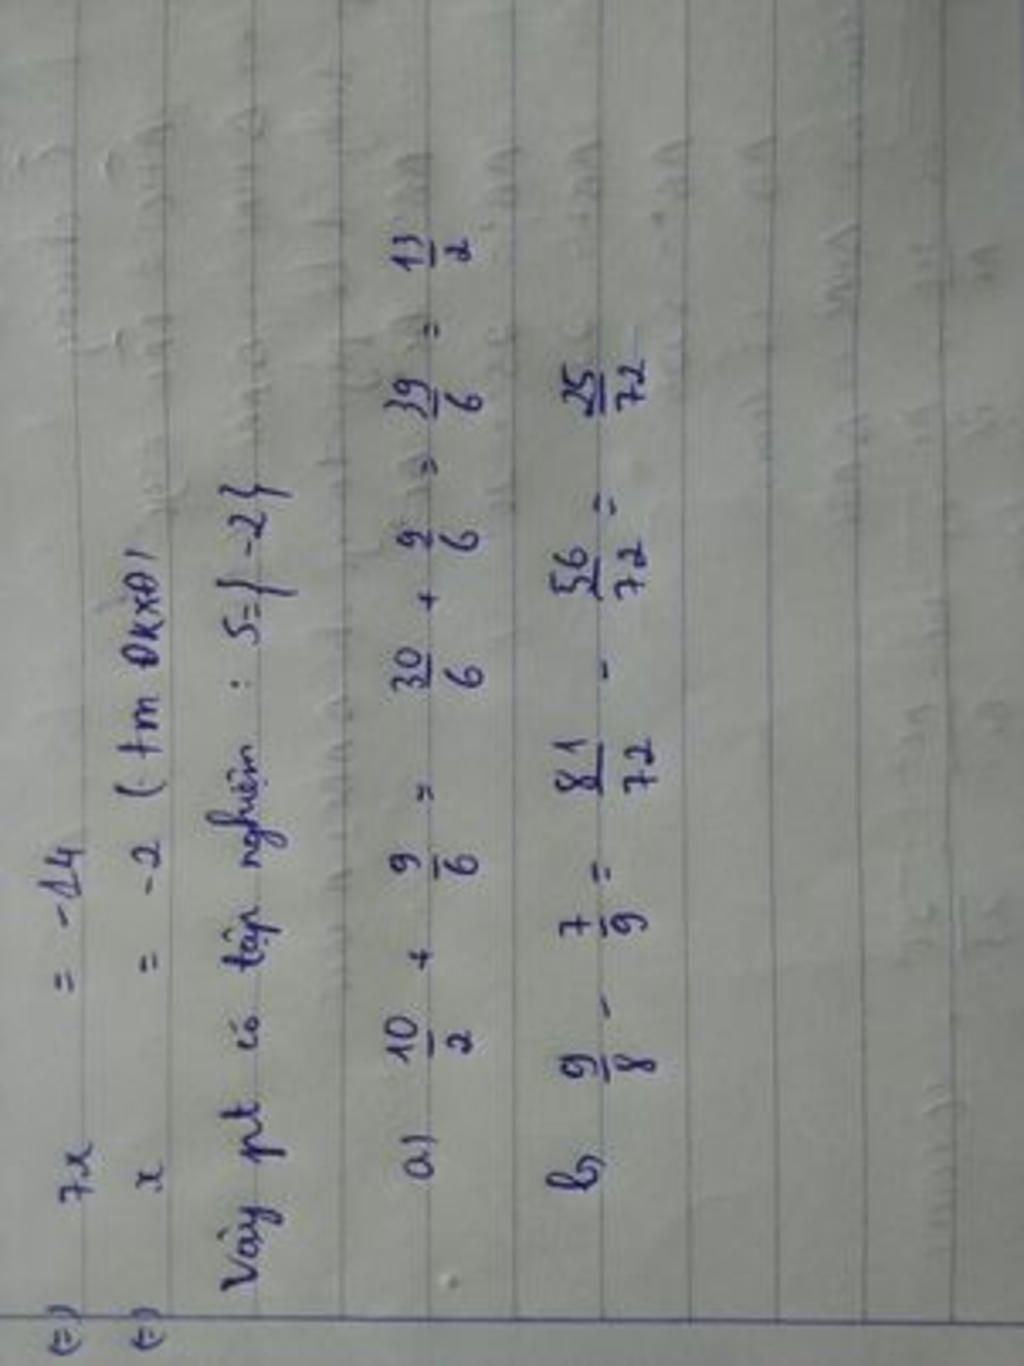 (=) 7x = -14
(=) x = -2 (tm ĐKXĐ)
Vậy pt có tập nghiệm : S={-2}
a) 10/2 + 9/6 = 30/6 + 9/6 = 39/6 = 13/2
b, 9/8 - 7/9 = 81/72 - 56/72 = 25/72